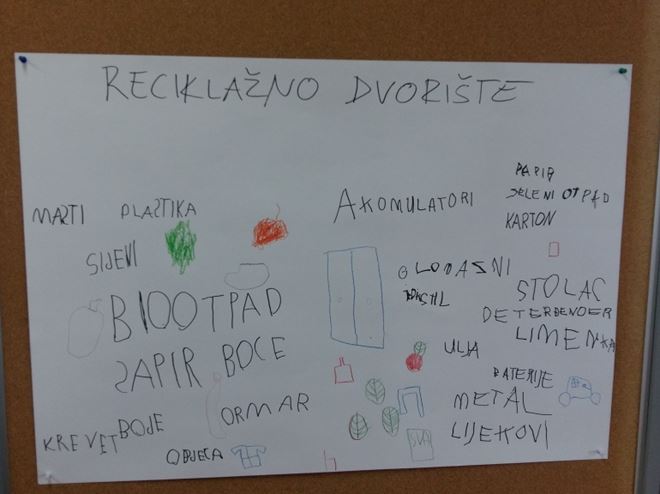 RECIKLAŽNO DVORIŠTE
PAPIR
ZELENI OTPAD
KARTON
AKOMULATORI
MASTI
PLASTIKA
SIJEVI
GLOMAZNI
STOLAC
DETERĐENGER
LIMENKA
BIOOTPAD
ULJA
PAPIR BOCE
BATERIJE
METAL
ORMAR
LIJEKOVI
KREVET
BOJE
ODJEĆA